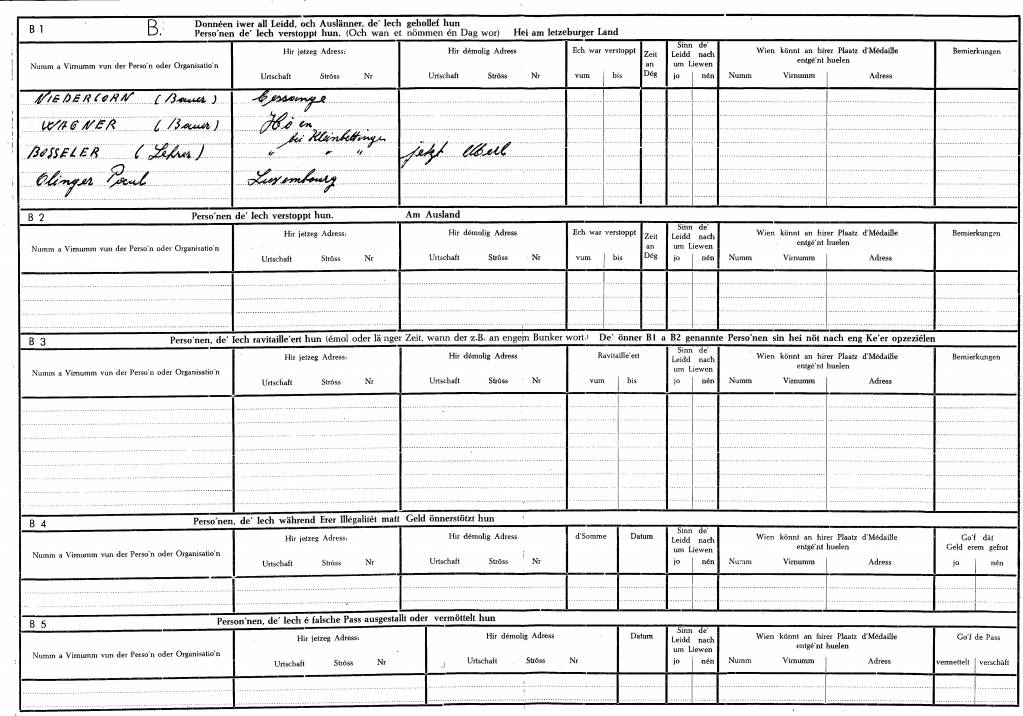 B 1 B. Donnéen iwer all Leidd, och Auslänner, de' Iech gehollef hun
Perso'nen de' Iech verstoppt hun. (Och wan et nömmen én Dag wor) Hei am letzeburger Land
Numm a Virnumm vun der Perso'n oder Organisatio'n Hir jetzeg Adress: Hir démolig Adress Ech war verstoppt Zeit an Dég Sinn de' Leidd nach um Liewen Wien könnt an hirer Plaatz d'Médaille entgé'nt huelen Bemierkungen
Urtschaft Ströss Nr Urtschaft Ströss Nr vum bis jo nén Numm Virnumm Adress
NIEDERCORN (Bauer) Cessange
WAGNER (Bauer) Hó en
bei Kleinbettingen
BOSSELER (Lehrer) " " " jetzt
Olinger Paul Luxembourg
B 2 Perso'nen de' Iech verstoppt hun. Am Ausland
Numm a Virnumm vun der Perso'n oder Organisatio'n Hir jetzeg Adress: Hir démolig Adress Ech war verstoppt Zeit an Dég Sinn de' Leidd nach um Liewen Wien könnt an hirer Plaatz d'Médaille entgé'nt huelen Bemierkungen
Urtschaft Ströss Nr Urtschaft Ströss Nr vum bis jo nén Numm Virnumm Adress
B 3 Perso'nen, de' Iech ravitaille'ert hun (émol oder länger Zeit, wann der z.B. an engem Bunker wort.) De' önner B1 a B2 genannte Perso'nen sin hei nöt nach eng Ke'er opzeziélen
Numm a Virnumm vun der Perso'n oder Organisatio'n Hir jetzeg Adress: Hir démolig Adress Ravitaille'ert Sinn de' Leidd nach um Liewen Wien könnt an hirer Plaatz d'Médaille entgé'nt huelen Bemierkungen
Urtschaft Ströss Nr Urtschaft Ströss Nr vum bis jo nén Numm Virnumm Adress
B 4 Perso'nen, de' Iech während Erer Illégalitét matt Geld önnerstötzt hun
Numm a Virnumm vun der Perso'n oder Organisatio'n Hir jetzeg Adress: Hir démolig Adress d'Somme Datum Sinn de' Leidd nach um Liewen Wien könnt an hirer Plaatz d'Médaille entgé'nt huelen Go'f dât Geld erem gefrot
Urtschaft Ströss Nr Urtschaft Ströss Nr jo nén Numm Virnumm Adress jo nén
B 5 Person'nen, de' Iech é falsche Pass ausgestallt oder vermöttelt hun
Numm a Virnumm vun der Perso'n oder Organisatio'n Hir jetzeg Adress: Hir démolig Adress Datum Sinn de' Leidd nach um Liewen Wien könnt an hirer Plaatz d'Médaille entgé'nt huelen Go'f de Pass
Urtschaft Ströss Nr Urtschaft Ströss Nr jo nén Numm Virnumm Adress vermettelt verschâft